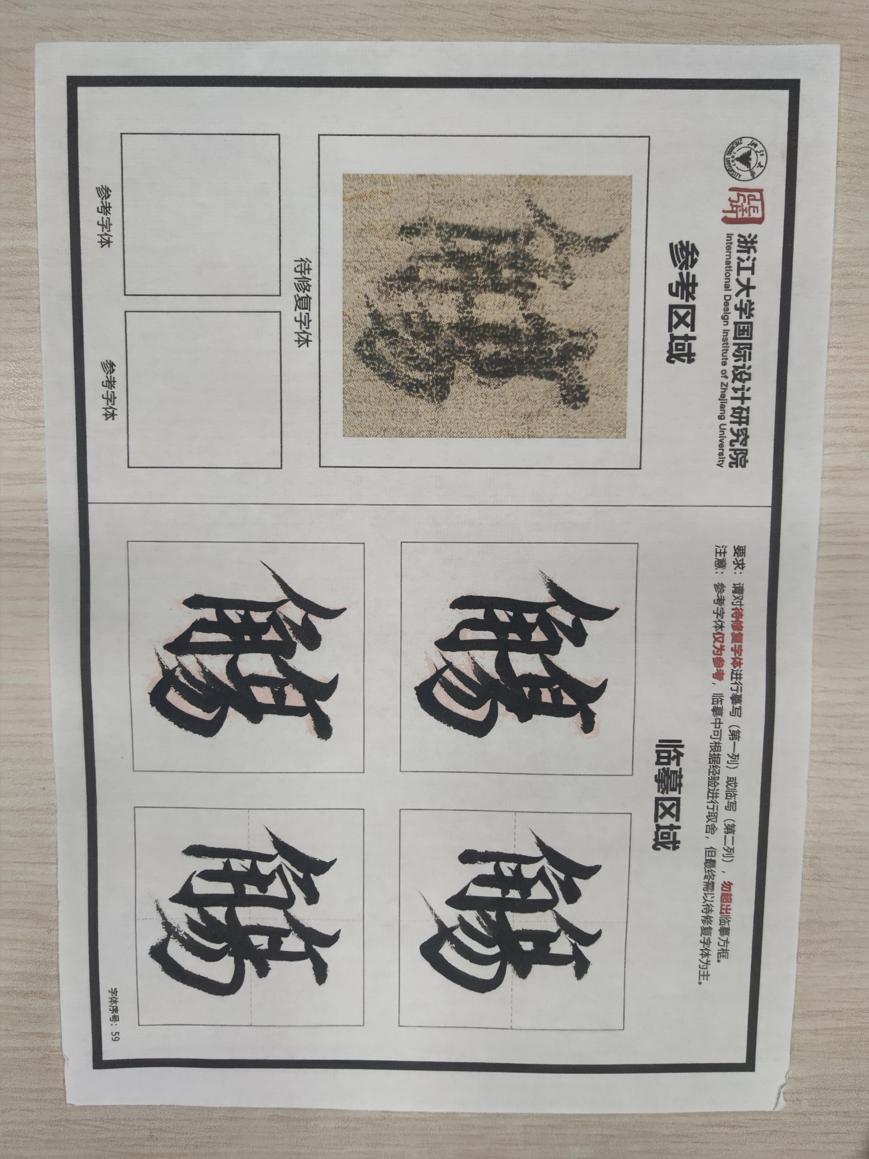 浙江大学国际设计研究院
International Design Institute of Zhejiang University
参考区域
觴
待修复字体
参考字体
参考字体
要求：请对待修复字体进行摹写（第一列）或临写（第二列），勿超出临摹方框。
注意：参考字体仅为参考，临摹中可根据经验进行取舍，但最终需以待修复字体为主。
临摹区域
觴 觴
觴 觴
字体序号：59